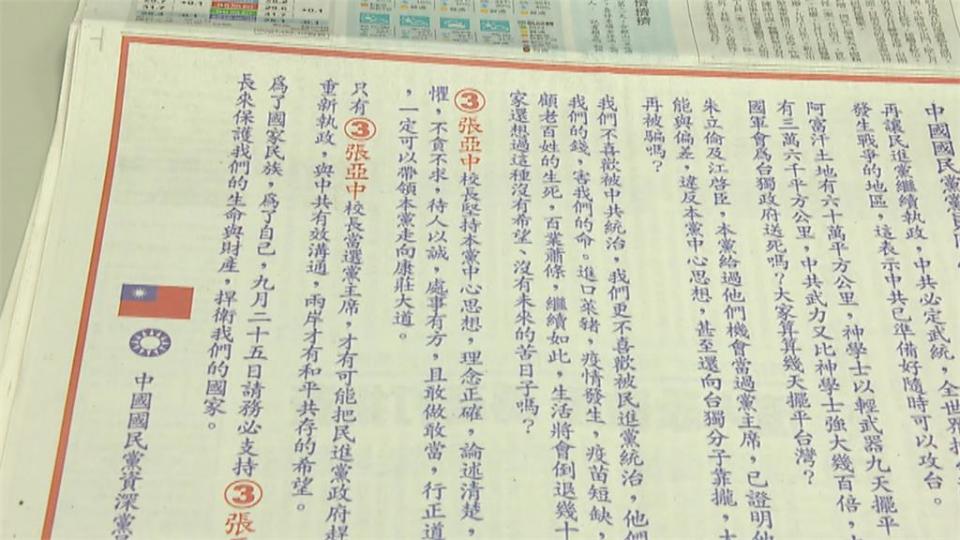 中國國民黨
再讓民進黨繼續執政，中共必定武統，全世界
發生戰爭的地區，這表示中共已準備好隨時可以攻台。
阿富汗土地有六十萬平方公里，神學士以輕武器九天擺平
有三萬六千平方公里，中共武力又比神學士強大幾百倍，
國軍會為台獨政府送死嗎？大家算算幾天擺平台灣？
朱立倫及江啓臣，本黨給過他們機會當過黨主席，已證明他
能與偏差，違反本黨中心思想，甚至還向台獨分子靠攏，
再被騙嗎？
我們不喜歡被中共統治，我們更不喜歡被民進黨統治，他們
我們的錢，害我們的命。進口萊豬，疫情發生，疫苗短缺，
顧老百姓的生死，百業蕭條，繼續如此，生活將會倒退幾十
家還想過這種沒有希望、沒有未來的苦日子嗎？
③張亞中校長堅持本黨中心思想，理念正確，論述清楚，
懼，不貪不求，待人以誠，處事有方，且敢做敢當，行正道
，一定可以帶領本黨走向康莊大道。
只有③張亞中校長當選黨主席，才有可能把民進黨政府趕
重新執政，與中共有效溝通，兩岸才有和平共存的希望。
為了國家民族，為了自己，九月二十五日請務必支持③張
長來保護我們的生命與財產，捍衛我們的國家。
中國國民黨資深黨